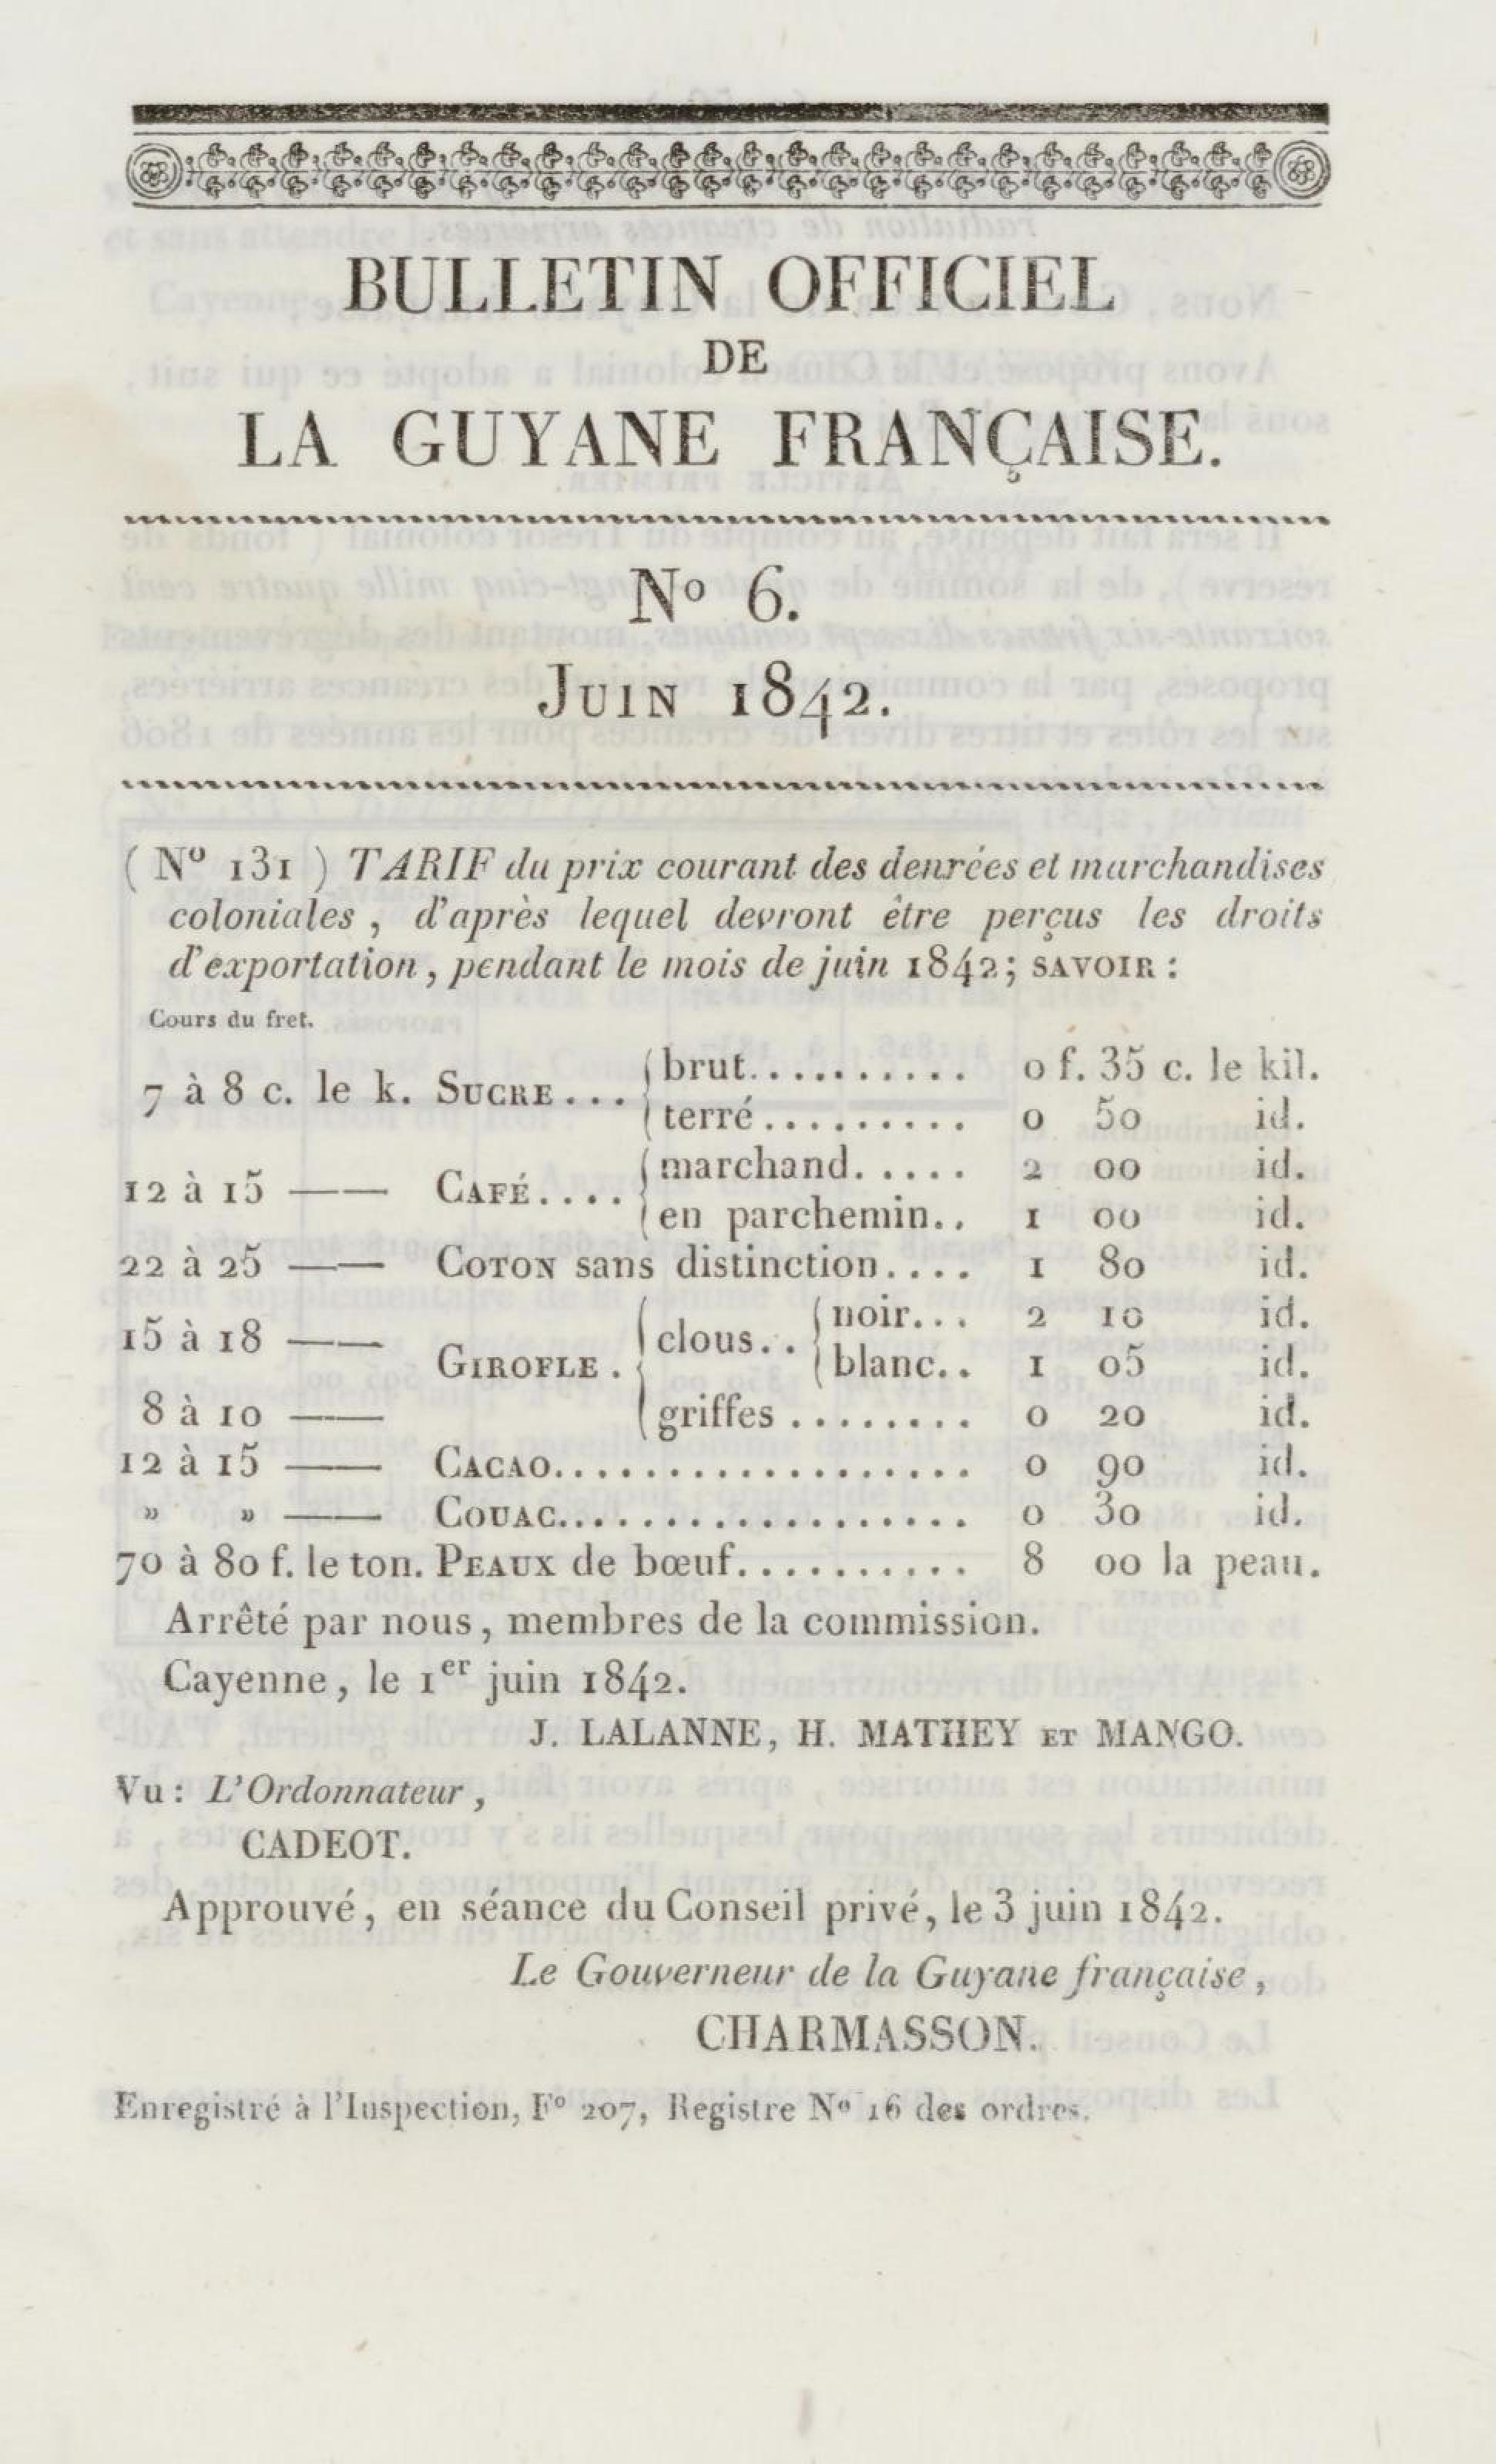 BULLETIN OFFICIEL
DE
LA GUYANE FRANÇAISE.
Nº 6.
JUIN 1842.
( Nº 131 ) TARIF du prix courant des denrées et marchandises
coloniales , d'après lequel devront être perçus les droits
d'exportation , pendant le mois de juin 1842; SAVOIR :
Cours du fret.
7 à 8 c. le k. SUCRE... brut.......... 0 f. 35 c. le kil.
terré......... 0 50 id.
12 à 15 —— CAFÉ.... marchand...... 2 00 id.
en parchemin.. 1 00 id.
22 à 25 —— COTON sans distinction.... 1 80 id.
15 à 18 —— GIROFLE . clous.. noir... 2 10 id.
blanc.. 1 05 id.
8 à 10 —— griffes ........ 0 20 id.
12 à 15 —— CACAO.................. 0 90 id.
» » —— COUAC.................. 0 30 id.
70 à 80 f. le ton. PEAUX de bœuf.......... 8 00 la peau.
Arrêté par nous, membres de la commission.
Cayenne, le 1er juin 1842.
J. LALANNE, H. MATHEY ET MANGO.
Vu : L'Ordonnateur ,
CADEOT.
Approuvé, en séance du Conseil privé, le 3 juin 1842.
Le Gouverneur de la Guyane française ,
CHARMASSON.
Enregistré à l'Inspection, Fº 207, Registre Nº 16 des ordres.